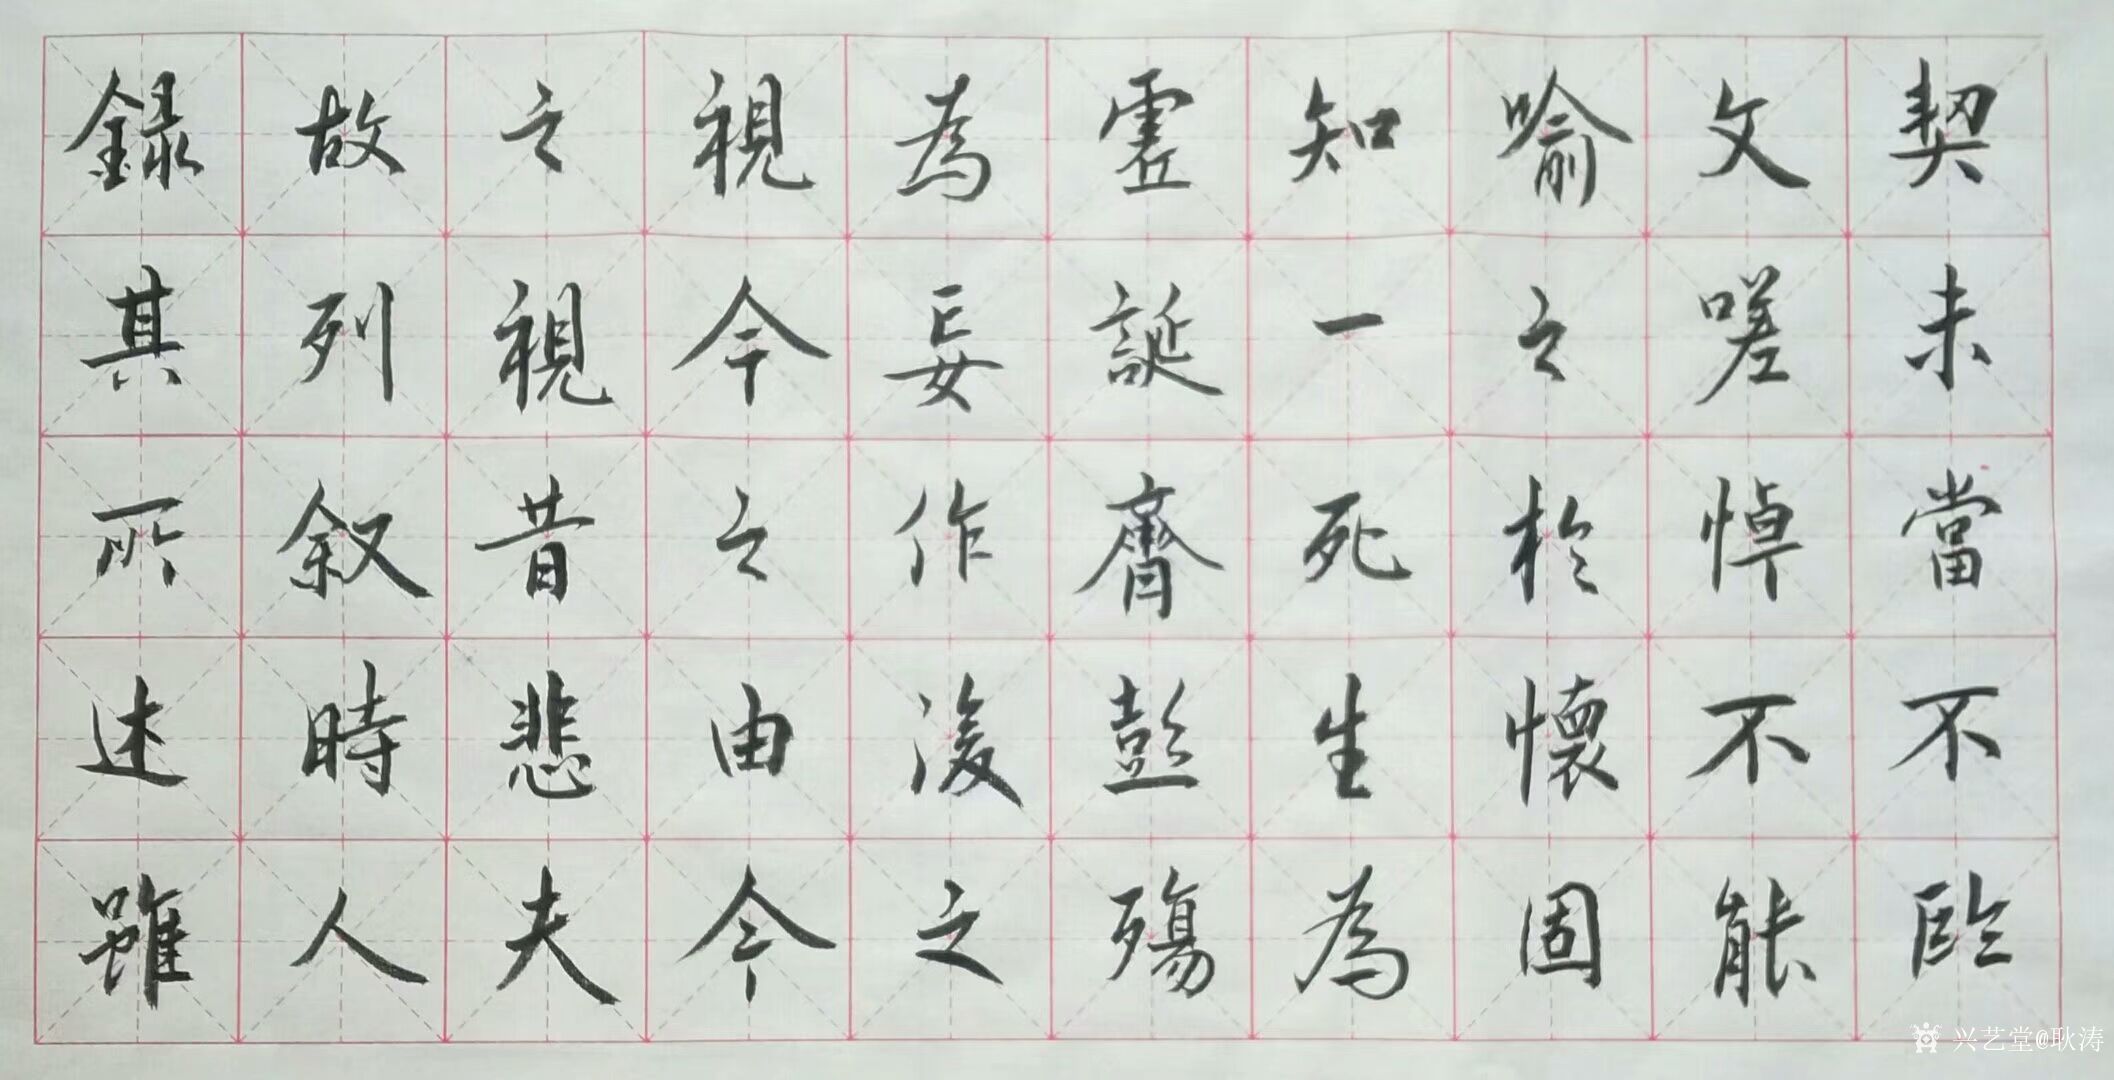 契未當不臨
文嗟悼不能
喻之於懷固
知一死生為
虛誕齊彭殤
為妄作後之
視今之由今
之視昔悲夫
故列叙時人
録其所述雖
兴艺堂@耿涛